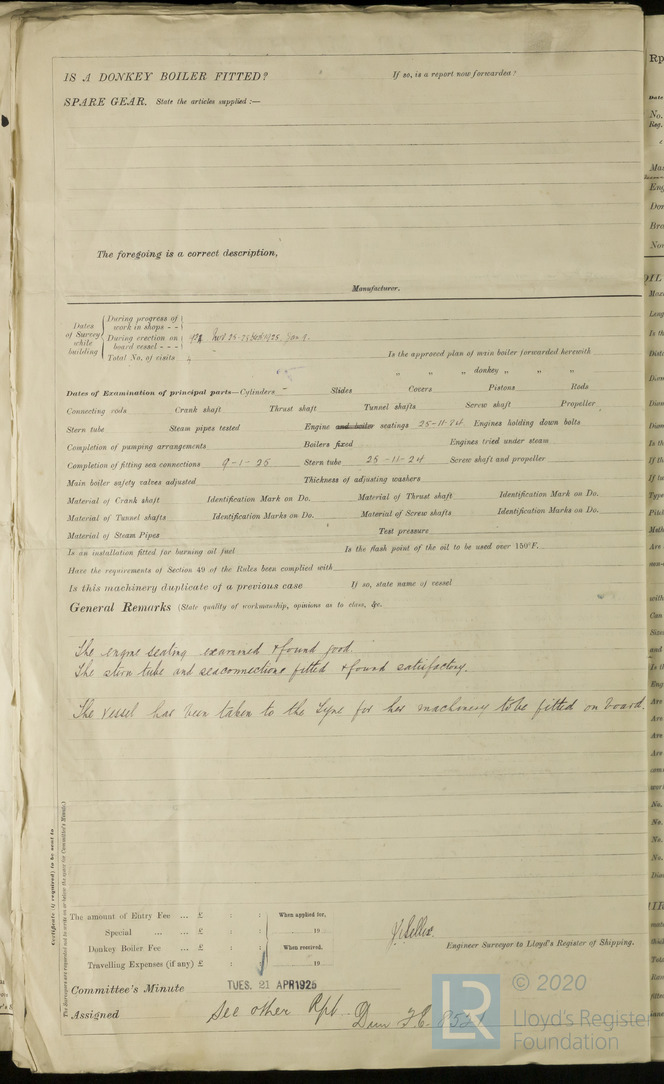 IS A DONKEY BOILER FITTED? If so, is a report now forwarded?
SPARE GEAR. State the articles supplied :—
The foregoing is a correct description,
Manufacturer.
Dates of Survey while building
During progress of work in shops - -
During erection on board vessel - - -
Total No. of visits
Is the approved plan of main boiler forwarded herewith
„ „ „ donkey „ „ „
Dates of Examination of principal parts—Cylinders - Slides Covers Pistons Rods
Connecting rods Crank shaft Thrust shaft Tunnel shafts Screw shaft Propeller
Stern tube Steam pipes tested Engine and boiler seatings 25-11-24 Engines holding down bolts
Completion of pumping arrangements Boilers fixed Engines tried under steam
Completion of fitting sea connections 9-1-25 Stern tube 25-11-24 Screw shaft and propeller
Main boiler safety valves adjusted Thickness of adjusting washers
Material of Crank shaft Identification Mark on Do. Material of Thrust shaft Identification Mark on Do.
Material of Tunnel shafts Identification Marks on Do. Material of Screw shafts Identification Marks on Do.
Material of Steam Pipes Test pressure
Is an installation fitted for burning oil fuel Is the flash point of the oil to be used over 150°F.
Have the requirements of Section 49 of the Rules been complied with
Is this machinery duplicate of a previous case If so, state name of vessel
General Remarks (State quality of workmanship, opinions as to class, &c.
The engine seating examined & found good.
The stern tube and seaconnections fitted & found satisfactory.
The vessel has been taken to the Tyne for her machinery to be fitted on board.
Certificate (if required) to be sent to
The Surveyors are requested not to write on or below the space for Committee's Minute.
The amount of Entry Fee ... £ : : When applied for,
Special ... ... £ : : 19
Donkey Boiler Fee ... £ : : When received,
Travelling Expenses (if any) £ : : 19
Engineer Surveyor to Lloyd's Register of Shipping.
Committee's Minute TUES. 21 APR 1925
Assigned See other Rpt
© 2020
LR Lloyd's Register
Foundation